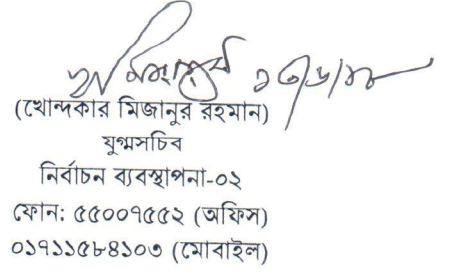 (খোন্দকার মিজানুর রহমান)
যুগ্মসচিব
নির্বাচন ব্যবস্থাপনা-০২
ফোন: ৫৫০০৭৫৫২ (অফিস)
০১৭১১৫৮৪১০৩ (মোবাইল)